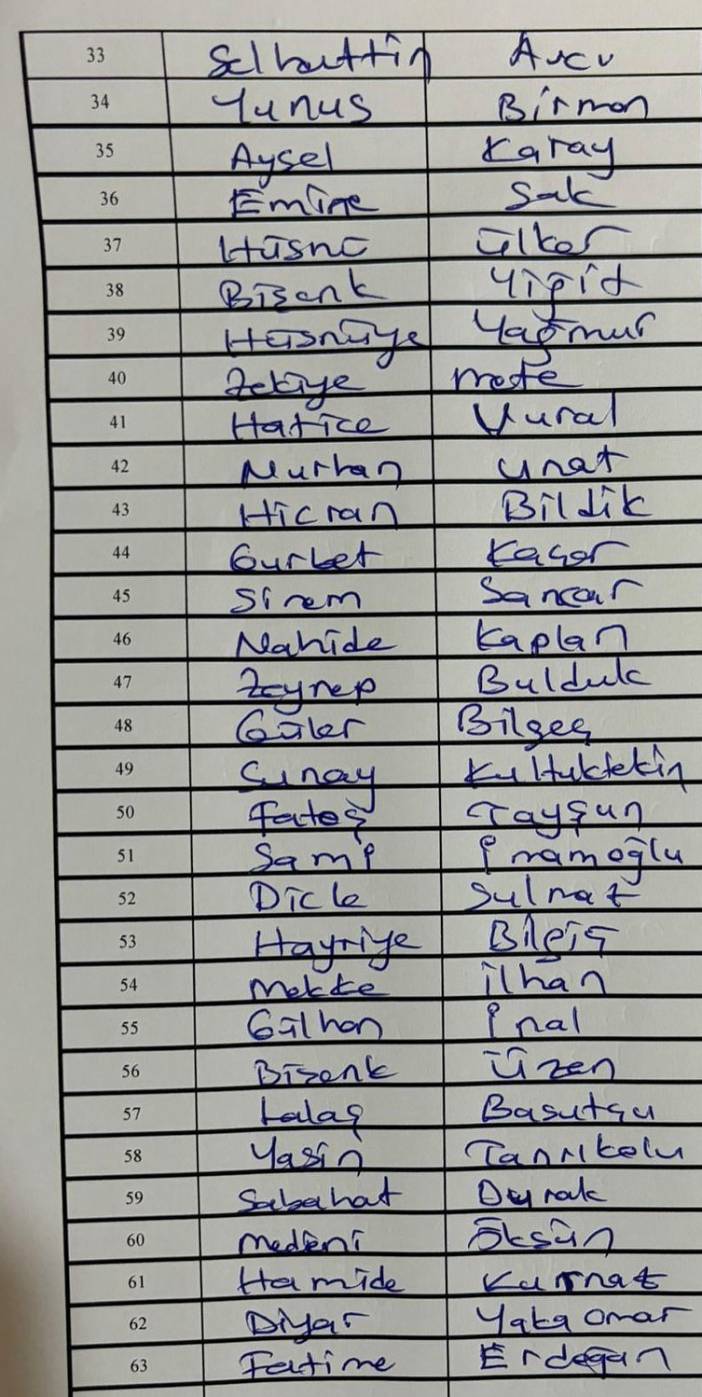 33 Selhattin Avcu
34 Yunus Birman
35 Aysel Karay
36 Emine Sak
37 Hüsnü Ülker
38 Bişenk Yiğit
39 Hüsnüye Yağmur
40 Zekiye mete
41 Hatice Vural
42 Nurhan Unat
43 Hicran Bildik
44 Gurbet Kaçar
45 Sinem Sancar
46 Nahide Kaplan
47 Zeynep Bulduk
48 Güler Bilgeç
49 Sunay Kultuktekin
50 Fateş Tayşun
51 Sami İmamoğlu
52 Dicle Sulmaz
53 Hayriye Bilgiç
54 Mekke ilhan
55 Gülhan İnal
56 Bişenk Üzen
57 Lalaş Basutçu
58 Yasin Tanrıkolu
59 Sabahat Durak
60 Medeni Öksün
61 Hamide Kurnaz
62 Diyar Yaka Omar
63 Fatime Erdoğan